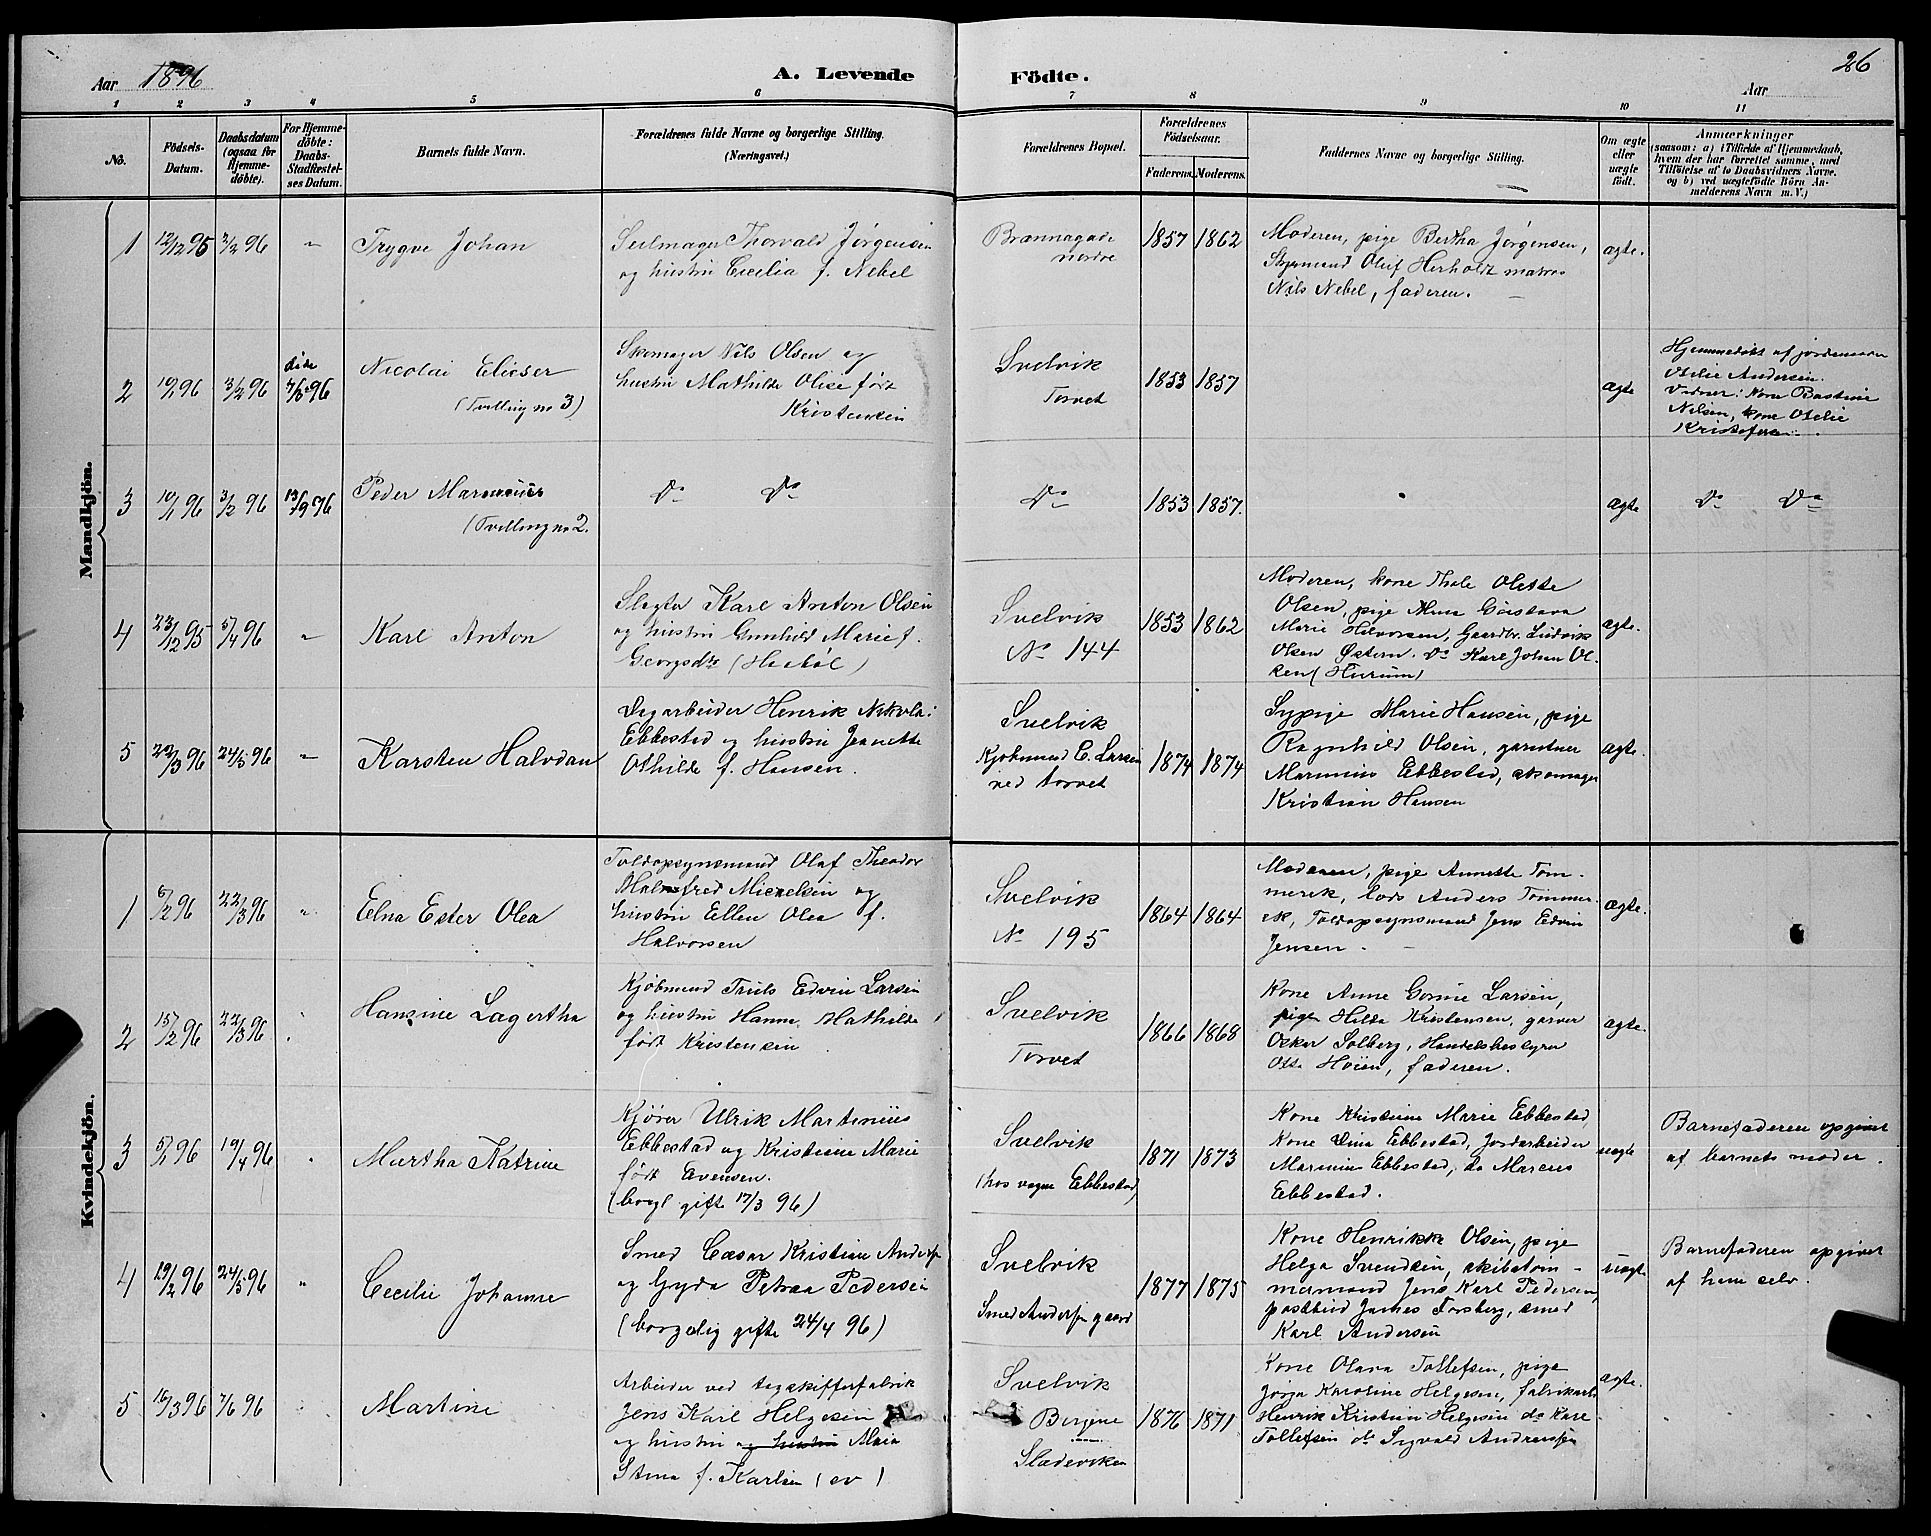 Aar 1896
A. Levende
Födte.
Aar
26
1 2 3 4 5 6 7 8 9 10 11
No.
Födsels-
Datum.
Daabsdatum
(ogsaa for
Hjemme-
döbte).
For Hjemme-
döbte:
Daabs-
Stadfæstel-
ses Datum.
Barnets fulde Navn.
Forældrenes fulde Navne og borgerlige Stilling.
(Næringsvei.)
Forældrenes Bopæl.
Forældrenes
Födselsaar.
Faderens. Moderens.
Faddernes Navne og borgerlige Stilling.
Om ægte
eller
uægte
födt.
Anmærkninger
(saasom: a) i Tilfælde af Hjemmedaab,
hvem der har forrettet samme, med
Tilföielse af to Daabsvidners Navne.
og b) ved uægtefödte Börn An-
melderens Navn m. V.)
Mandkjön.
1
12/12 95
2/2 96
"
Trygve Johan
Seilmager Thorvald Jørgensen
og hustru Cecilia f. Nebel
Brænnagade
nordre
1857
1862
Moderen, pige Bertha Jørgensen,
Styrmand Oluf Herholdt matros
Nils Nebel, faderen.
ægte.
2
10/1 96
3/2 96
døde
7/6 96
Nicolai Elieser
(Tvilling no 3)
Skomager Nils Olsen og
hustru Mathilde Olise født
Kristensen
Svelvik
Torvet
1853
1857
ægte
Hjemmedøbt af jordemoder
Otelie Andersen.
Vidner: Kone Bastine
Nilsen, kone Otelie
3
10/1 96
3/2 96
13/9 96
Peder Marensius
(Tvilling no 2.
Do Do
Do
1853
1857.
ægte
Do Do
4
23/12 95
5/4 96
"
Karl Anton
Slagter Karl Anton Olsen
og hustru Gunhild Marie f.
Georgsdtr
Svelvik
No 144
1853
1862
Moderen, kone Thale Olette
Olsen, pige Anna Gustava
Marie Halvorsen, Gaardbr. Ludvik
Olsen Østern. Do Karl Johan Ol-
sen (Hurum)
ægte.
5
22/3 96
24/5 96
"
Karsten Halvdan
Dagarbeider Henrik Nikolai
Ebbestad og hustru Jeanette
Othilde f. Hansen.
Svelvik
Kjøbmand C. Larsen
ved torvet
1874
1874
Sypige Marie Hansen, pige
Ragnhild Olsen, gartner
Marinius Ebbestad, skomager
Kristian Hansen
ægte.
Kvindekjön.
1
6/2 96
22/3 96
"
Edna Ester Olea
Toldopsynsmand Olaf Theodor
Malmfred Micaelsen og
hustru Ellen Olea f.
Halvorsen
Svelvik
No 195
1864
1864
Moderen, pige Annette Tom-
merek, lods Anders Tommer-
ek, Toldopsynsmand Jens Edvin
Jensen.
ægte.
2
15/2 96
22/3 96
"
Hansine Lagertha
Kjøbmand Truls Edvin Larsen
og hustru Hanna Mathilda
født Kristensen
Svelvik
Torvet
1866
1868
Kone Anne Gorine Larsen,
pige Hilda Kristensen, garver
Oskar Solberg, Handelsbestyrer
Otto Høien, faderen.
ægte.
3
5/1 96
19/4 96
"
Martha Katrine
Kjører Ulrik Martinius
Ebbestad og Kristiane Marie
født Evensen.
(borgl gifte 17/3 96)
Svelvik
(hos vogne Ebbestad)
1871
1873
Kone Kristiane Marie Ebbestad,
Kone Lina Ebbestad, Jordarbeider
Marinius Ebbestad, do Marcus
Ebbestad.
uægte
Barnefaderen opgivet
af barnets moder.
4
19/2 96
24/5 96
"
Cecilie Johanne
Smed Cæsar Kristian Anders.
og Gyda Petrea Pedersen
(borgelig gifte 24/4 96)
Svelvik
Smed Anders. gaard
1877
1875
Kone Henrikke Olsen, pige
Helga Svendsen, skibstøm-
mermand Jens Karl Pedersen,
postbud James Forsberg, smed
Karl Andersen
uægte
Barnefaderen opgivet
af ham selv.
5
16/3 96
7/6 96
Martine
Arbeider ved tagskifferfabrik
Jens Karl Helgesen
og hustru og hustru Maia
Stina f. Karlsen (sv)
Svelvik
Bergene
Sladeviken
1876
1871
Kone Olava Tollefsen, pige
Josja Karoline Helgesen, fabrikarb.
Henrik Kristian Helgesen do Karl
Tollefsen do Sigvald Andreassen
ægte.